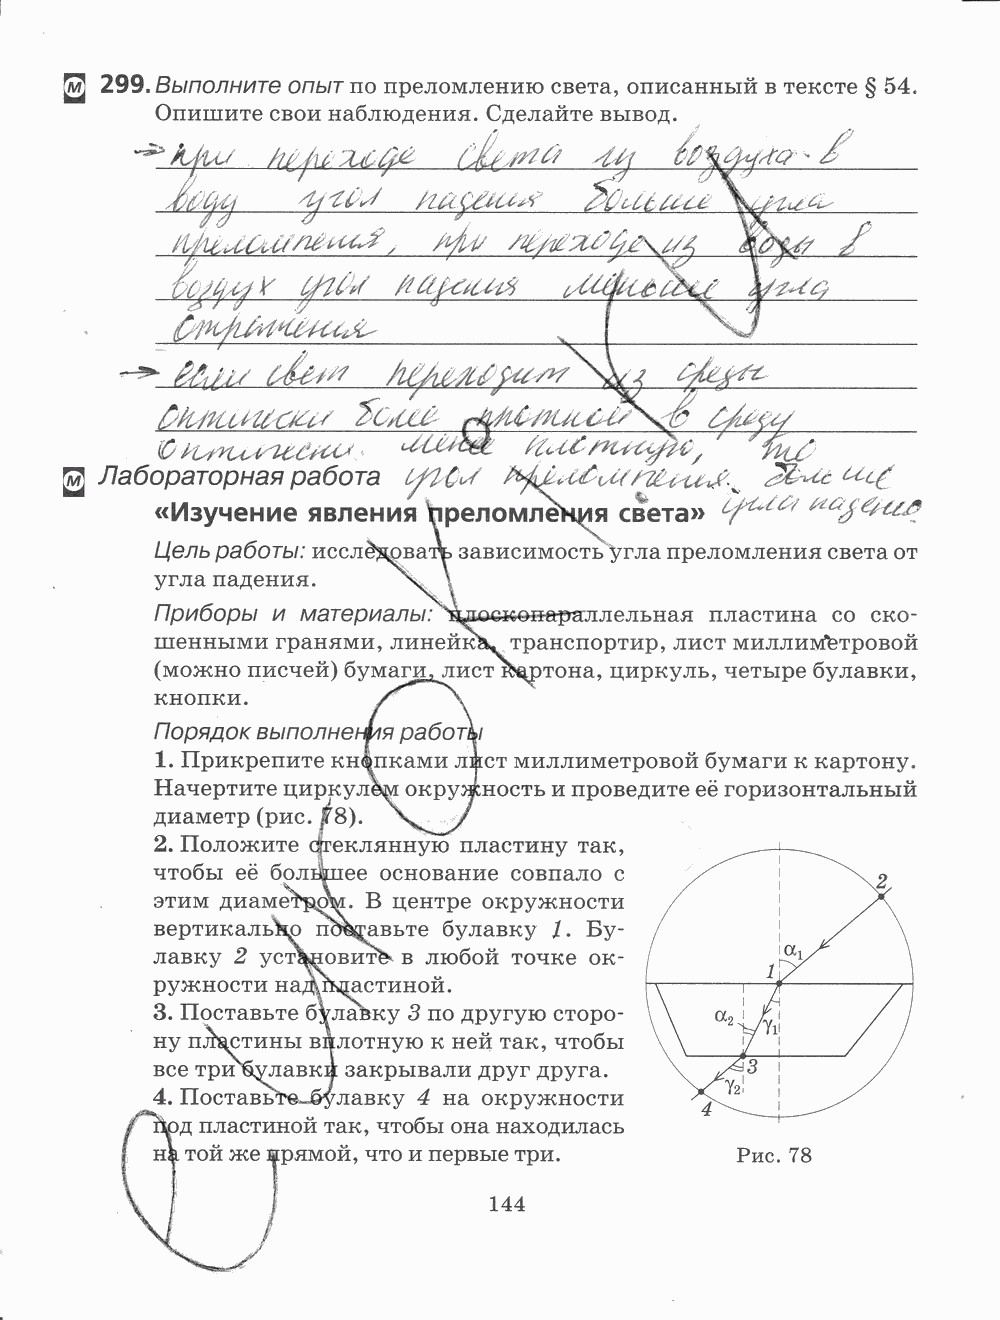 М 299. Выполните опыт по преломлению света, описанный в тексте § 54.
Опишите свои наблюдения. Сделайте вывод.
→ при переходе света из воздуха в
воду угол падения больше угла
преломления, при переходе из воды в
воздух угол падения меньше угла
отражения
→ если свет переходит из среды
оптически более плотной в среду
оптически менее плотную, то
М Лабораторная работа угол преломления больше
«Изучение явления преломления света» угла падения
Цель работы: исследовать зависимость угла преломления света от
угла падения.
Приборы и материалы: плоскопараллельная пластина со ско-
шенными гранями, линейка, транспортир, лист миллиметровой
(можно писчей) бумаги, лист картона, циркуль, четыре булавки,
кнопки.
Порядок выполнения работы
1. Прикрепите кнопками лист миллиметровой бумаги к картону.
Начертите циркулем окружность и проведите её горизонтальный
диаметр (рис. 78).
2. Положите стеклянную пластину так,
чтобы её большее основание совпало с
этим диаметром. В центре окружности
вертикально поставьте булавку 1. Бу-
лавку 2 установите в любой точке ок-
ружности над пластиной.
3. Поставьте булавку 3 по другую сторо-
ну пластины вплотную к ней так, чтобы
все три булавки закрывали друг друга.
4. Поставьте булавку 4 на окружности
под пластиной так, чтобы она находилась
на той же прямой, что и первые три.
2
α₁
1
α₂
γ₁
3
γ₂
4
Рис. 78
144